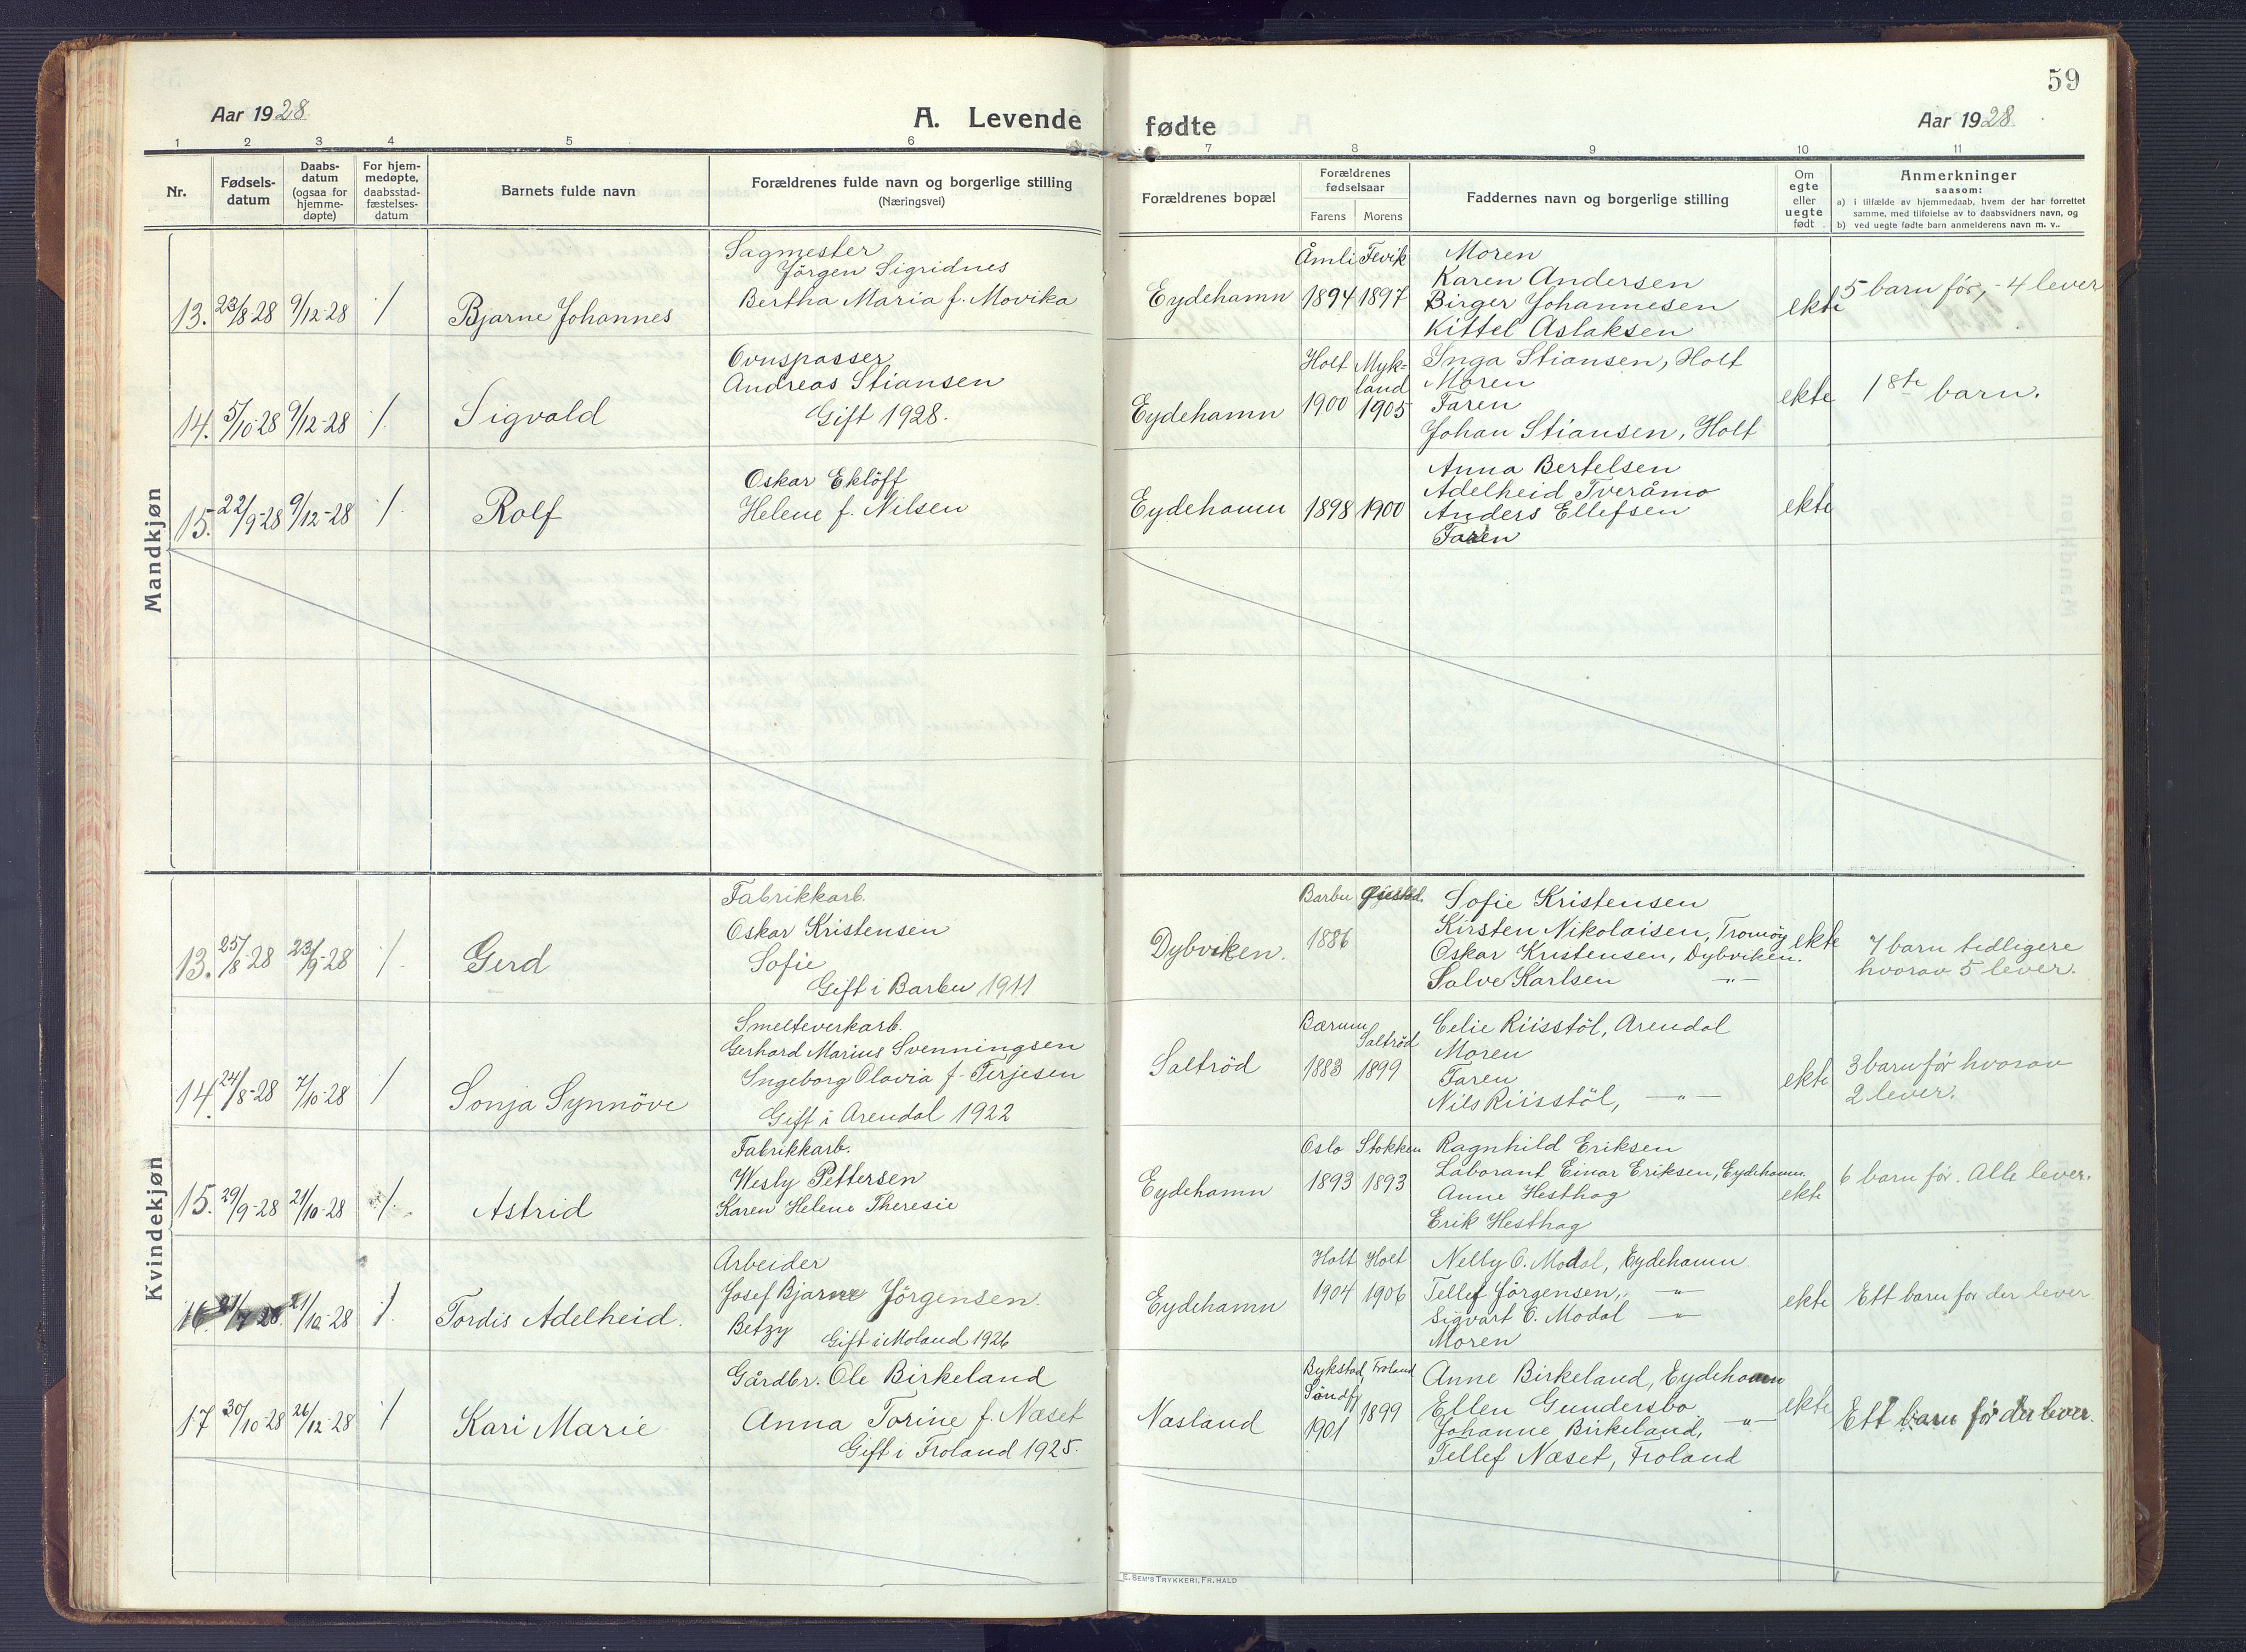 59
Aar 1928.
A. Levende
fødte
Aar 1928.
1 2 3 4 5 6 7 8 9 10 11
Nr.
Fødsels-
datum
Daabs-
datum
(ogsaa for
hjemme-
døpte)
For hjem-
medøpte,
daabsstad-
fæstelses-
datum
Barnets fulde navn
Forældrenes fulde navn og borgerlige stilling
(Næringsvei)
Forældrenes bopæl
Forældrenes
fødselsaar
Farens Morens
Faddernes navn og borgerlige stilling
Om
egte
eller
uegte
født
Anmerkninger
saasom:
a) i tilfælde av hjemmedaab, hvem der har forrettet
samme, med tilføielse av to daabsvidners navn, og
b) ved uegte fødte barn anmelderens navn m. v..
Mandkjøn
13. 23/8-28 9/12-28 / Bjarne Johannes
Sagmester
Jörgen Sigridnes
Bertha Maria f. Movika
Eydehamn
Åmli Fevik
1894 1897
Moren
Karen Andersen
Birger Johannesen
Kittel Aslaksen
ekte
5 barn før, - 4 lever
14. 5/10-28 9/12-28 / Sigvald
Ovnspasser
Andreas Stiansen
Gift 1928.
Eydehamn
Holt Myk-
land
1900 1905
Inga Stiansen, Holt
Moren
Faren
Johan Stiansen, Holt
ekte
1ste barn.
15. 22/9-28 9/12-28 / Rolf
Oskar Eklöff
Helene f. Nilsen
Eydehamn
1898 1900
Anna Bertelsen
Adelheid Tveråmo
Anders Ellefsen
Faren
ekte
Kvindekjøn
13. 25/8-28 23/9-28 / Gerd
Fabrikkarb.
Oskar Kristensen
Sofie
Gift i Barbu 1911
Dybviken.
Barbu
1886
Sofie Kristensen
Kirsten Nikolaisen, Tromöy
Oskar Kristensen, Dybviken.
Salve Karlsen -"-
ekte
7 barn tidligere
hvorav 5 lever.
14. 24/8-28 7/10-28 / Sonja Synnöve
Smelteverkarb.
Gerhard Marius Svenningsen
Ingeborg Olavia f. Terjesen
Gift i Arendal 1922
Saltröd
Bærum Saltröd
1883 1899
Celie Riisstöl, Arendal
Moren
Faren
Nils Riisstöl, -"-
ekte
3 barn för hvorav
2 lever.
15. 29/9-28 21/10-28 / Astrid
Fabrikkarb.
Wesly Pettersen
Karen Helene Theresie
Eydehamn
Oslo Stokken
1893 1893
Ragnhild Eriksen
Laborant Einar Eriksen, Eydehamn.
Anne Hesthag
Erik Hesthag
ekte
6 barn för. Alle lever.
16. 21/10-28 / Tordis Adelheid.
Arbeider
Josef Bjarne Jörgensen.
Betzy Gift i Moland 1926
Eydehamn
Holt Holt
1904 1906
Nelly O. Modal, Eydehamn
Tellef Jörgensen, -"-
Sigvart O. Modal -"-
Moren
ekte
Ett barn før der lever
17 30/10-28 26/12-28 / Kari Marie
Gårdbr. Ole Birkeland
Anna Torine f. Næset
Gift i Froland 1925.
Næsland
Bykstad, Froland
Söndfj
1901 1899
Anne Birkeland, Eydehamn
Ellen Gundersbo
Johanne Birkeland, -"-
Tellef Næset, Froland
ekte
Ett barn för der lever.
E. SEM'S TRYKKERI, FR.HALD